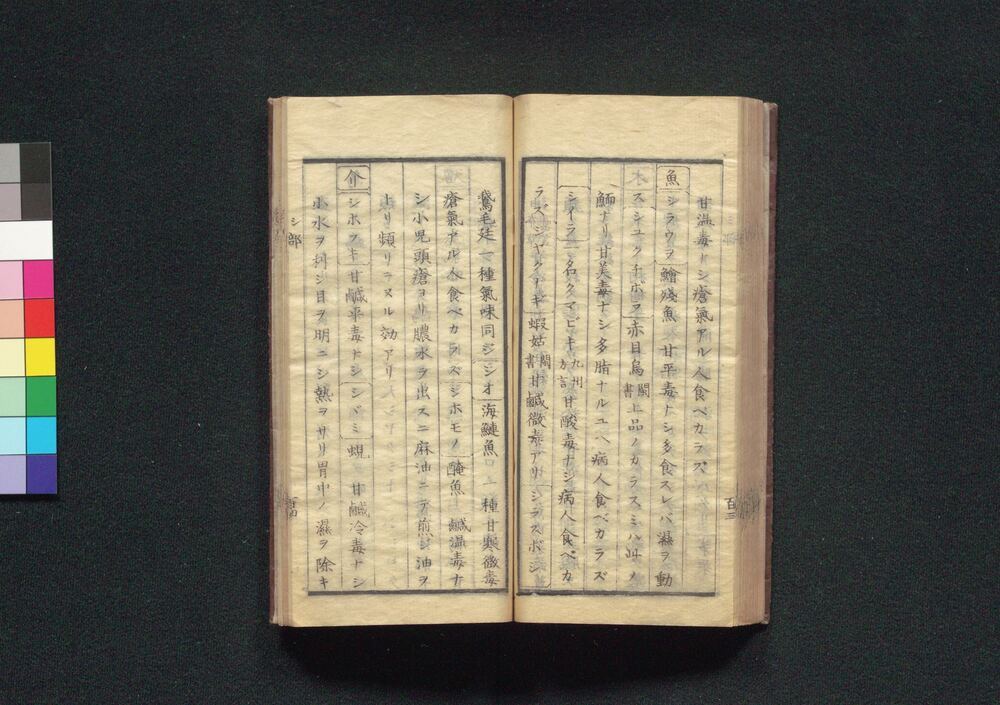 甘温毒ナシ瘡氣アル人食ベカラズ
魚
シラウヲ 鱠殘魚 甘平毒ナシ多食スレバ濕ヲ動
ス シユクチボラ 赤目烏 閩書 上品ノカラスミハ此ノ
鯔ナリ甘美毒ナシ多脂ナルユヘ病人食ベカラズ
シイラ 一名クマビキ 九州方言 甘酸毒ナシ病人食ベカ
ラズ シヤクナギ 蝦姑 閩書 甘鹹微毒アリ シラスボシ
百三
鵞毛脡一種氣味同ジ シオ 海鰱魚 一種甘寒微毒
瘡氣アル人食ベカラズ シホモノ 醃魚 鹹温毒ナ
シ小児頭瘡ヨリ膿水ヲ出スニ麻油ニテ煎ジ油ヲ
トリ頻リニヌル効アリ
介
シホフキ 甘鹹平毒ナシ シヾミ 蜆 甘鹹冷毒ナシ
小水ヲ利シ目ヲ明ニシ熱ヲサリ胃中ノ濕ヲ除キ
シ部
百四